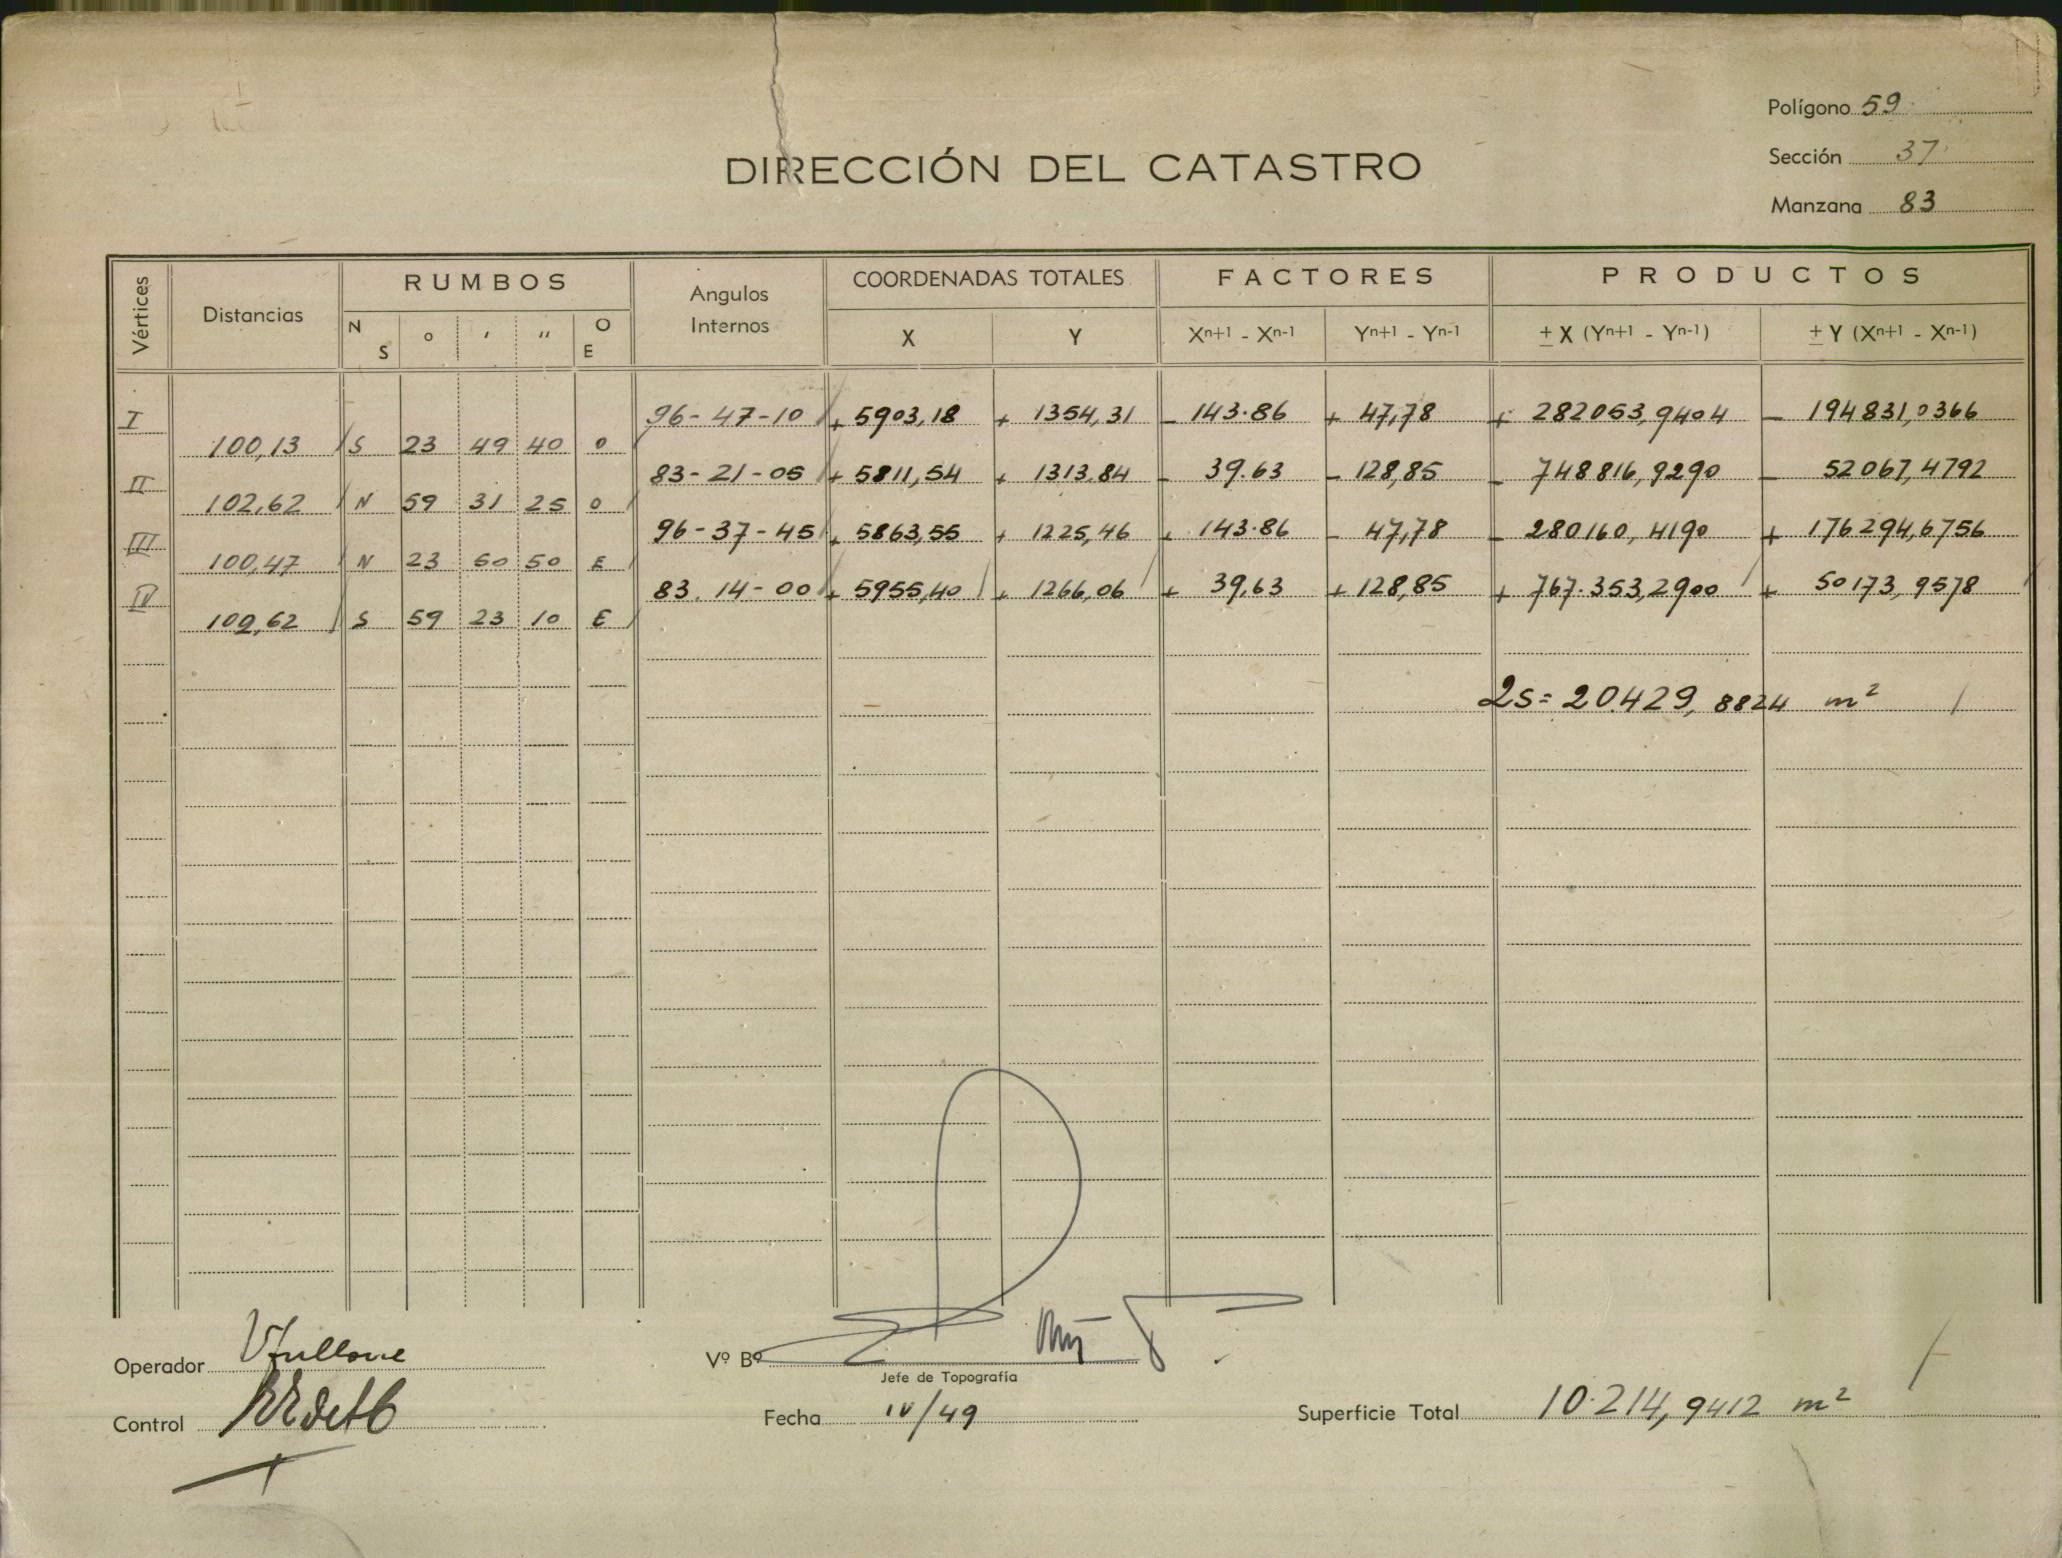 Polígono 59
Sección 37
Manzana 83
DIRECCIÓN DEL CATASTRO
Vértices Distancias RUMBOS Angulos Internos COORDENADAS TOTALES FACTORES PRODUCTOS
N S ° ' " O E X Y Xn+1 - Xn-1 Yn+1 - Yn-1 ± X (Yn+1 - Yn-1) ± Y (Xn+1 - Xn-1)
I 96-47-10 + 5903,18 + 1354,31 - 143.86 + 47,78 + 282053,9404 - 194831,0366
100,13 S 23 49 40 O
II 83-21-05 + 5811,54 + 1313.84 - 39.63 - 128,85 - 748816,9290 - 52067,4792
102,62 N 59 31 25 O
III 96-37-45 + 5863,55 + 1225,46 + 143.86 - 47,78 - 280160,4190 + 176294,6756
100,47 N 23 50 50 E
IV 83.14-00 + 5955,40 + 1266,06 + 39,63 + 128,85 + 767.353,2900 + 50173,9578
102,62 S 59 23 10 E
2S = 20.429,8824 m²
Operador
Vº Bº
Jefe de Topografía
Control
Fecha IV/49
Superficie Total 10.214,9412 m²